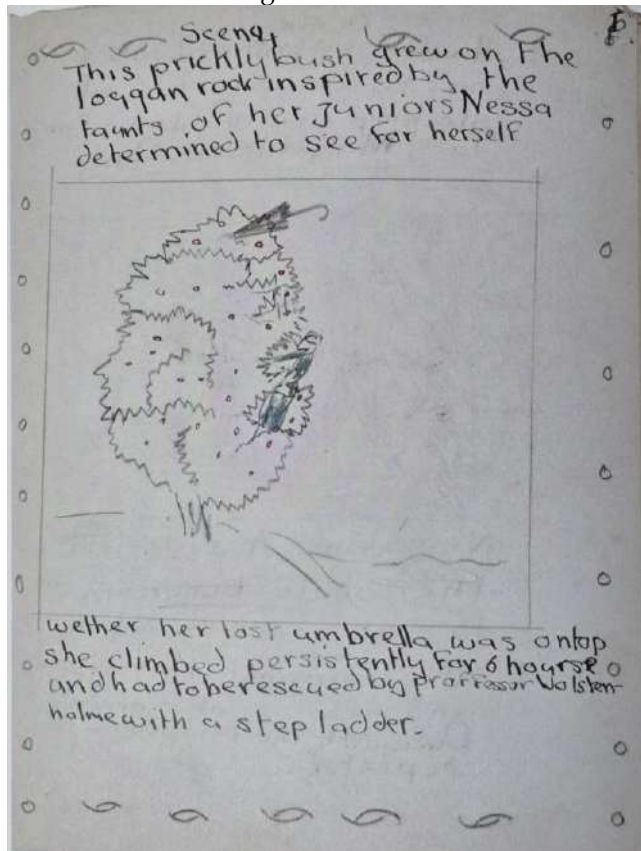 Scene,
This prickly bush grew on The
loggan rock inspired by the
taunts of her Juniors Nessa
determined to see for herself
wether her lost umbrella was ontop
she climbed persistently for 6 hourse
and had to be rescued by Wolsten-
holme with a step ladder.